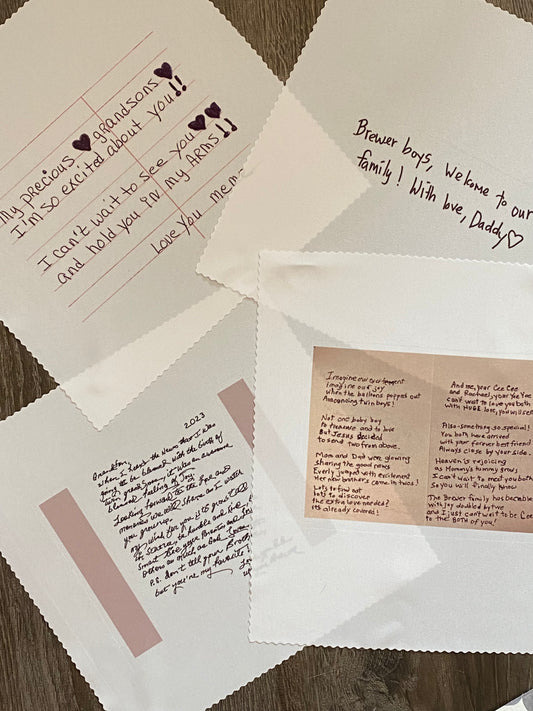 My precious 🖤 grandsons 🖤
I'm so excited about you!!
I can't wait to see you 🖤🖤
and hold you in my ARMS!!
Love You mem
Brewer boys, Welcome to our
family! With love, Daddy♡
Imagine our
imagine our joy
when the balloons popped out
Announcing twin boys!
Not one baby boy
to treasure and to love
But Jesus decided
to send two from above.
Mom and Dad were glowing
sharing the good news
Everly jumped with excitement
Her new brothers come in twos!
lots to find out
lots to discover
the extra love needed?
its already covered!
And me, your Cee Cee
and Rachael, your Yee Yee
can't wait to love you both
with HUGE love, you will see
Also-something so special!
You both have arrived
with your forever best friend
Always close by your side.
Heaven's rejoicing
as Mommy's tummy grows
I can't wait to meet you both
So you will finally know
The Brewer family has became
with joy doubled by two
and I just can't wait to be Cee
to the BOTH of you!
2023
Grandson,
when I heard the news that I was
going to be blessed with the birth of
twin grandsons, it was an awesome
blended feeling of Joy.
Looking forward to the fun and
memories we will share as we watch
you grow up.
my wish for you is to grow tall
smart like your Parents and
others as much as God loves
P.S. don't tell your Brother
but you're my favorite!